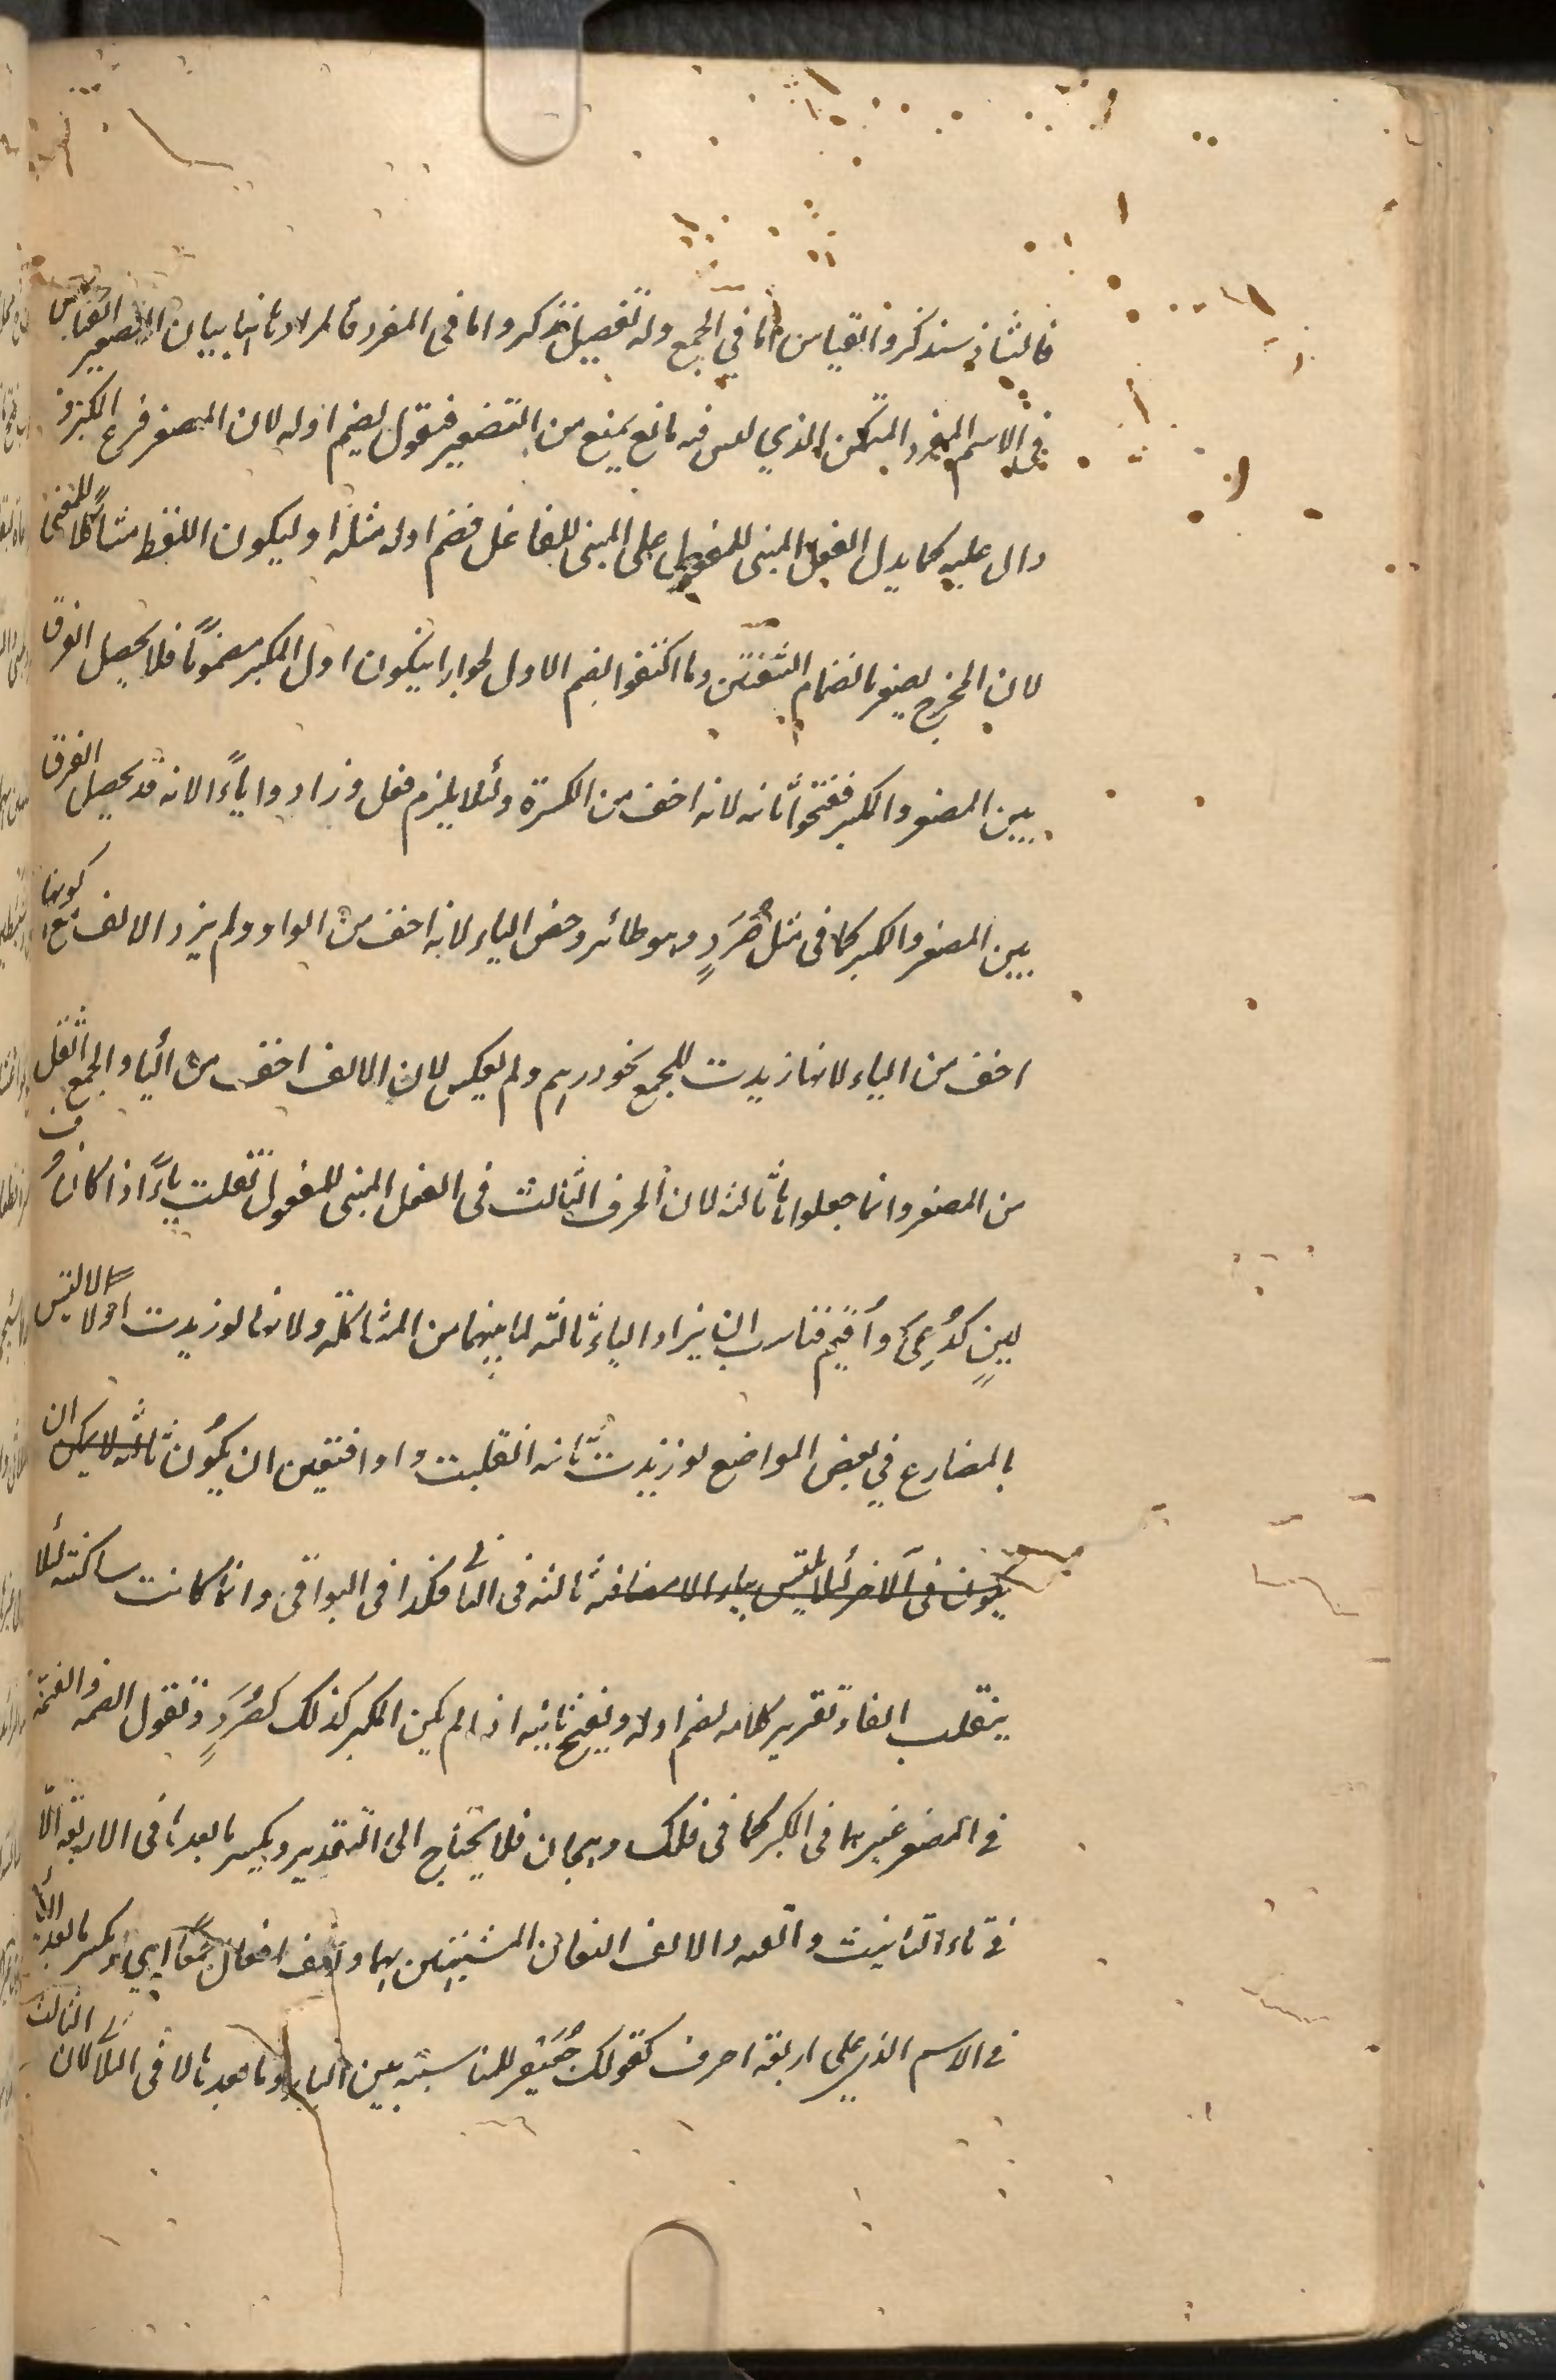 فالشاذ سنذكر والقياس اما في الجمع وله تفصيل نذكر واما في المفرد فالمراد ثانيا بيان التصغير القياس
في الاسم المفرد المتمكن الذي ليس فيه مانع يمنع من التصغير فنقول يضم اوله لان المصغر فرع المكبر و
دال عليه كما يدل الفعل المبني للمفعول على المبني للفاعل فضم اوله مثله او ليكون اللفظ مشاكلا للمعنى
لان المخرج يصغر بانضمام الشفتين وما اكتفوا بضم الاول لجواز ان يكون اول المكبر مضموما فلا يحصل الفرق
بين المصغر والمكبر ففتحوا ثانيه لانه اخف من الكسرة ولئلا يلزم فعل وزادوا ياءً لانه قد يحصل الفرق
بين المصغر والمكبر كما في مثل صُرَدٍ وهو طائر وخص الياء لانه اخف من الواو ولم يزد الالف مع كونها
اخف من الياء لانها زيدت للجمع نحو دراهم ولم يعكس لان الالف اخف من الياء والجمع اثقل
من المصغر وانما جعلوها ثالثه لان الحرف الثالث في الفعل المبني للمفعول تقلب ياءً اذا كان
لين كدُعِىَ وأُقيم فناسب ان يزاد الياء ثالثه لما بينهما من المشاكلة ولانها لو زيدت اولا لالتبس
بالمضارع في بعض المواضع لو زيدت ثانيه انقلبت واوا فتعين ان يكون ثالثه لا يمكن ان
يكون في الاخر لئلا يلتبس بياء الاضافة ثالثه في الثلاثي فكذا في البواقي وانما كانت ساكنة لئلا
ينقلب الفا وتقرير كلامه يضم اوله ويفتح ثانيه اذا لم يكن المكبر كذلك كصُرَدٍ وتقول الضمة والفتحة
في المصغر غيرها في المكبر كما في فلك وهجان فلا يحتاج الى التقدير ويكسر ما بعدها في الاربعة الّا
في تاء التأنيث والفيه والالف والنون المشبهتين بهما والف افعال جمعا اي يكسر ما بعد الياء
في الاسم الذي على اربعة احرف كقولك جُعَيفِر للمناسبة بين الياء وما بعدها لا في الثلاثي لان الثالث